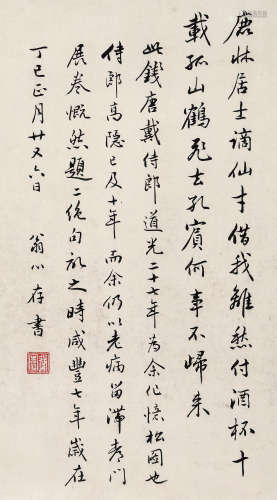 鹿林居士谪仙才借我離愁付酒杯十
載孤山鶴飛去孔賓何事不歸来
此錢唐戴侍郎道光二十七年為余作憶松圖也
侍郎高隱已及十年而余仍以老病留滯青門
展卷慨然題二絶句記之時咸豐七年歲在
丁巳正月廿又六日
翁心存書